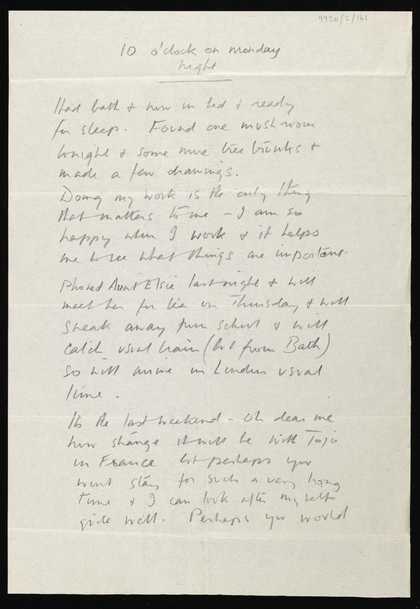 9920/2/161
10 o'clock on monday
night
Had bath & now in bed & ready
for sleep. Found one mushroom
tonight & some nice tree trunks &
made a few drawings.
Doing my work is the only thing
that matters to me - I am so
happy when I work & it helps
me to see what things are important.
Phoned Aunt Elsie last night & will
meet her for tea on Thursday & will
sneak away from school & will
catch usual train (but from Bath)
so will arrive in London usual
time.
Its the last weekend - Oh dear me
how strange it will be with
in France but perhaps you
wont stay for such a very long
time & I can look after myself
quite well. Perhaps you would